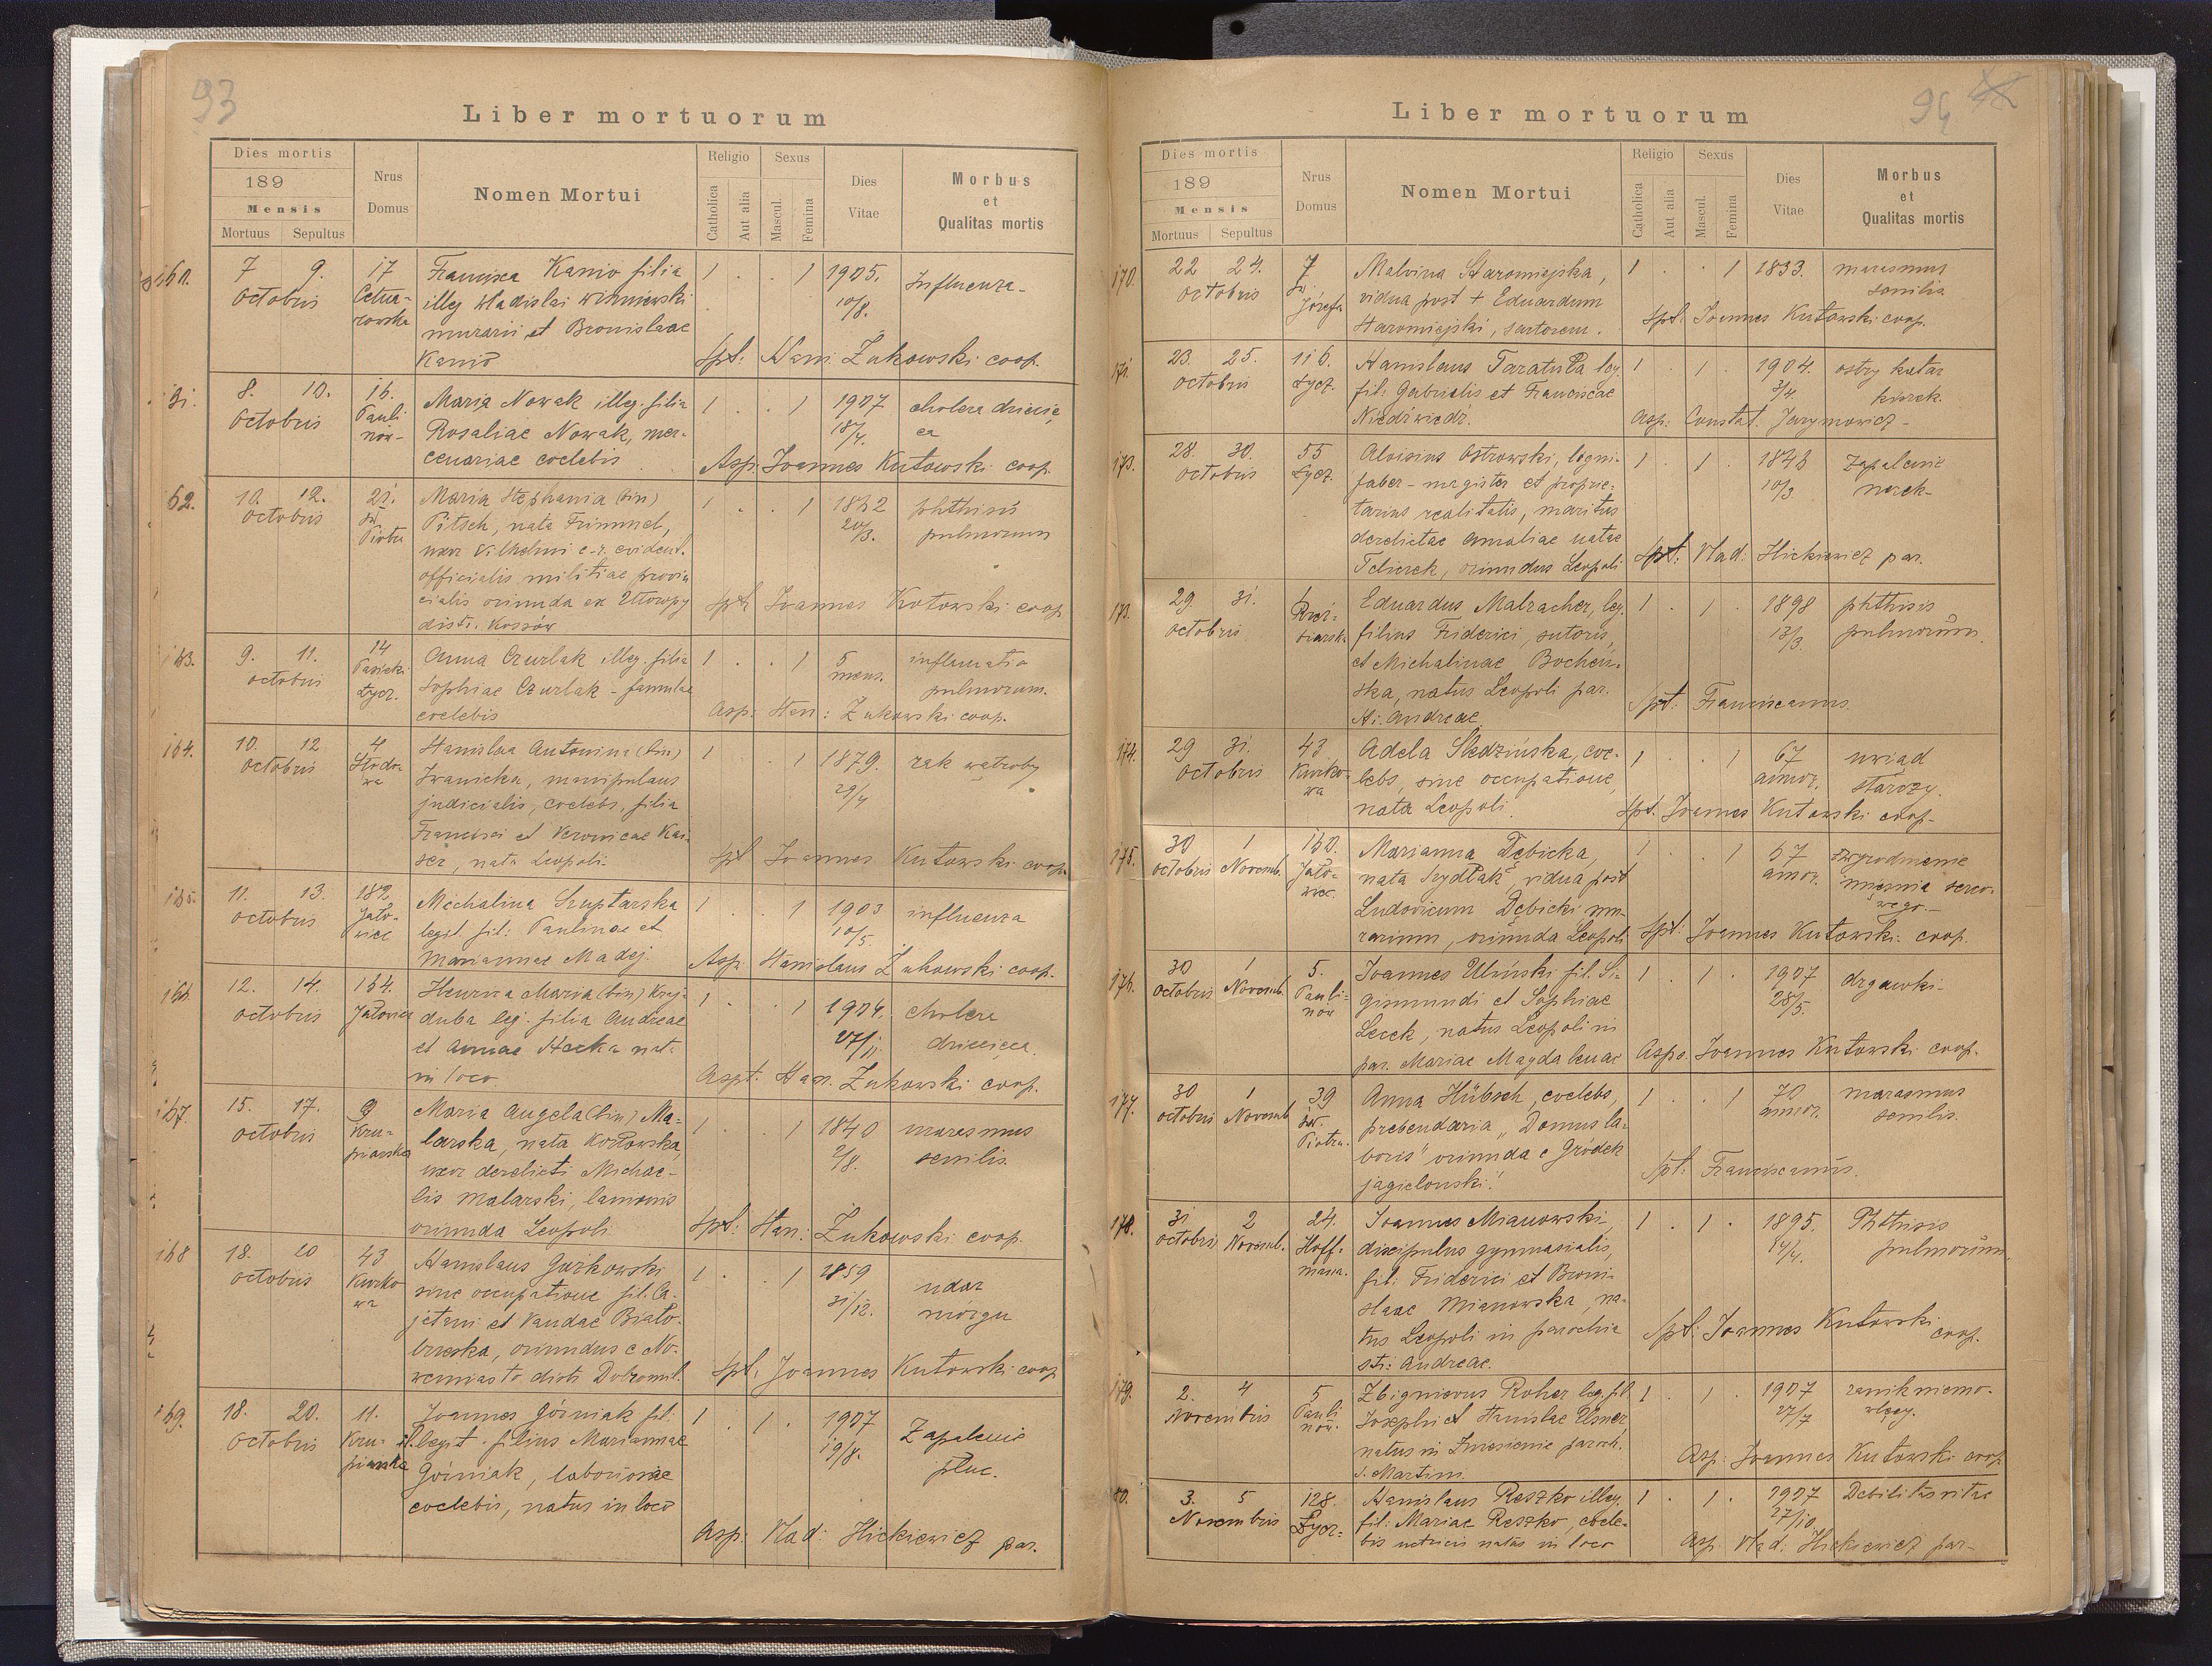 93
Liber mortuorum
Dies mortis
189
Mensis
Mortuus Sepultus
Nrus Domus
Nomen Mortui
Religio
Catholica
Aut alia
Sexus
Mascul.
Femina
Dies Vitae
Morbus
et
Qualitas mortis
7 9. 17 Francisca Kanio filia 1 . . 1 1905. Influenza-
Octobris illeg. Wladislai Wisniewski 10/8.
murarii et Bronislaae
Kanio Spt: Stan. Żukowski coop.
8. 10. 16. Maria Nowak illeg. filia 1 . . 1 1907 cholera dziecię
Octobris Pauli Rosaliae Nowak, mer- 18/4. ca
nów- cenariae coelebis Asp: Joannes Kutowski coop.
62. 10. 12. 21. Maria Stephania (bin) 1 . . 1 phthisis
Octobris św. Pitsch, nata 20/3. pulmonum
Piotra uxor Vilhelmi c.r. evident.
officialis militiae provin
cialis oriunda ex Utoropy Spt. Joannes Kutowski coop
distr. Kossów
163. 9. 11. 14 Anna Czurlak illeg. filia 1 . . 1 5 inflamatio
octobris Pasieki Sophiae Czurlak - famulae mens. pulmonum.
Łycz. coelebis Asp: Stan: Żukowski coop.
164. 10. 12 4 Stanislaa Antonina (bin) 1 . . 1 1879. rak wątroby
octobris Iwanicka, manipulans 29/4
judicialis, coelebs, filia
Francisci et Veronicae Kai-
ser, nata Leopoli. Spt Joannes Kutowski coop.
165. 11. 13. 182 Michalina Szuptarska 1 . . 1 1903 influenza
octobris Jało- legit. fil: Paulinae et 10/5.
wiec Mariannae Madej. Asp. Stanislaus Żukowski coop.
166 12. 14. 154. Maria (bin) Kraj- 1 . . 1 1904. cholera
octobris Jałowiec duba leg. filia Andreae 27/11. dziecięca.
et Annae nata
in loco. Aspt: Stan. Żukowski coop.
167. 15. 17. 9 Maria Angela (bin) Ma- 1 . . 1 1840 marasmus
octobris Kru- larska, nata Kozłowska, 2/8. senilis.
piarska uxor derelicti Michae-
lis Malarski, lanionis
oriunda Leopoli Spt: Stan: Żukowski coop.
168 18. 20 43 Stanislaus Gurkowski 1 . . 1 1859 udar
octobris Kurko sine occupatione fil. Ca- 31/12. mózgu
wa jetani et Vandae Biało-
brzeska, oriundus e No-
wemiasto distr. Dobromil. Spt. Joannes Kutowski coop
169. 18. 20. 11. Joannes Górniak fil. 1 . 1 . 1907 Zapalenie
Octobris Kru- illegit. filius Mariannae 19/8. płuc.
piarska Górniak, laboriosae
coelebis, natus in loco
Asp: Vlad: Hickiewicz par.
94
Liber mortuorum
Dies mortis
189
Mensis
Mortuus Sepultus
Nrus Domus
Nomen Mortui
Religio
Catholica
Aut alia
Sexus
Mascul.
Femina
Dies Vitae
Morbus
et
Qualitas mortis
170. 22 24. 7 Malvina Staromiejska, 1 . . 1 1833. marasmus
Octobris św. vidua post + Eduardum senilis
Józefa Staromiejski, sartorem. Spt: Joannes Kutowski coop.
171. 23. 25. 116. Stanislaus Taratuła leg. 1 . 1 . 1904. ostry katar
octobris Łycz. fil: Gabrielis et Franciscae 3/4. kiszek.
Niedźwiedź. Asp: Constat. Jarymowicz-
28. 30. 55 Aloisius Ostrowski, ligni- 1 . 1 . 1843 Zapalenie
octobris Łycz. faber - magister et proprie- 10/3 nerek-
tarius realitatis, maritus
derelictae Amaliae natae
oriundus Leopoli Spt: Vlad: Hickiewicz par.
173. 29. 31. Eduardus Malracher, leg. 1 . 1 . 1898 phthisis
octobris filius Friderici, sutoris, 13/3. pulmonum.
et Michalinae Bocheń-
ska, natus Leopoli par.
St. Andreae. Spt: Franciscanus.
174. 29 31. 43 Adela Śledzińska, coe- 1 . . 1 67 uwiąd
Octobris Kurko- lebs, sine occupatione, annor. starczy.
wa nata Leopoli. Spt. Joannes Kutowski coop-
175. 30 1 150. Marianna Dębicka, 1 . . 1 57 zwyrodnienie
octobris Novemb. Jało- nata Szydłak, vidua post annor. mięśnia serco-
wiec. Ludovicum Dębicki mu- wego.-
rarium, oriunda Leopoli Spt: Joannes Kutowski coop.
176. 30 1 5. Joannes Uliński fil. Si- 1 . 1 . 1907 drgawki-
octobris Novemb. Pauli- gismundi et Sophiae 28/5.
nów natus Leopoli in
par. Mariae Magdalenae Asps. Joannes Kutowski coop.
177. 30 1 39 Anna Hübsch, coelebs, 1 . . 1 70 marasmus
octobris Novemb św. prebendaria „Domus la- annor. senilis.
Piotra. boris" oriunda e Gródek
jagielonski! Spt: Franciscanus.
178. 31 2 24. Joannes Mianowski- 1 . 1 . 1895. Phthisis
octobris Novemb. Hoff- discipulus gymnasialis, 14/4. pulmonum
mana. fil: Friderici et Broni-
slaae Mianowska, na-
tus Leopoli in parochia Spt: Joannes Kutowski coop.
sti: Andreae.
179. 2. 4 5 Zbignievus Roher leg. fil. 1 . 1 . 1907 zanik niemo-
Novembris Pauli Josephi et Stanislae 27/7 wlęcy.
nów. natus in Zniesienie paroch.
S. Martini. Asp: Joannes Kutowski coop
3. 5 128. Stanislaus Reszko illeg. 1 . 1 . 1907 Debilitas vitae
Novembris Łycz- fil: Mariae Reszko, coele- 27/10.
bis nutricis natus in loco Asp: Vlad: Hickiewicz par-